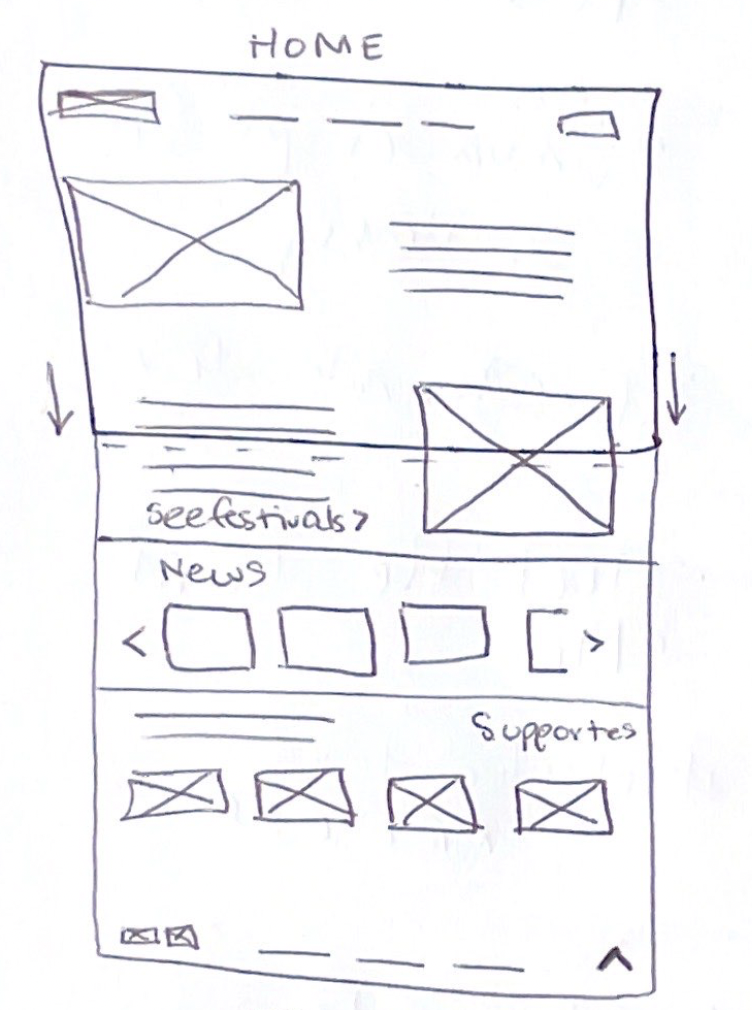 HOME
See festivals >
News
< >
Supportes